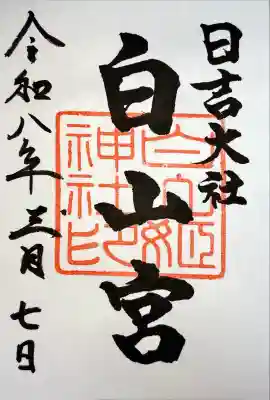 日吉大社
白山宮
令和八年三月七日
白山姫
神社印